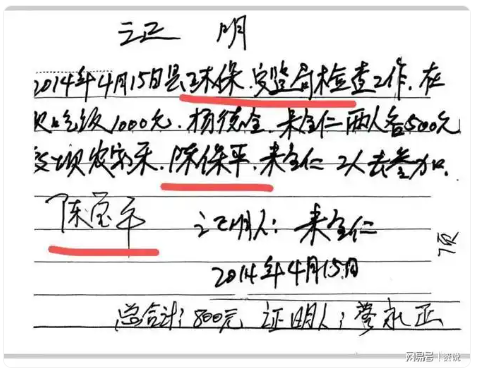 证 明
2014年4月15日县环保、安监局检查工作、在
1000元、杨德全、来全仁两人各500元
农家乐、陈保平、来全仁 2人去参加、
陈宝平 证明人：来全仁
2014年4月15日
总合计：800元 证明人：永正
7页
网易号